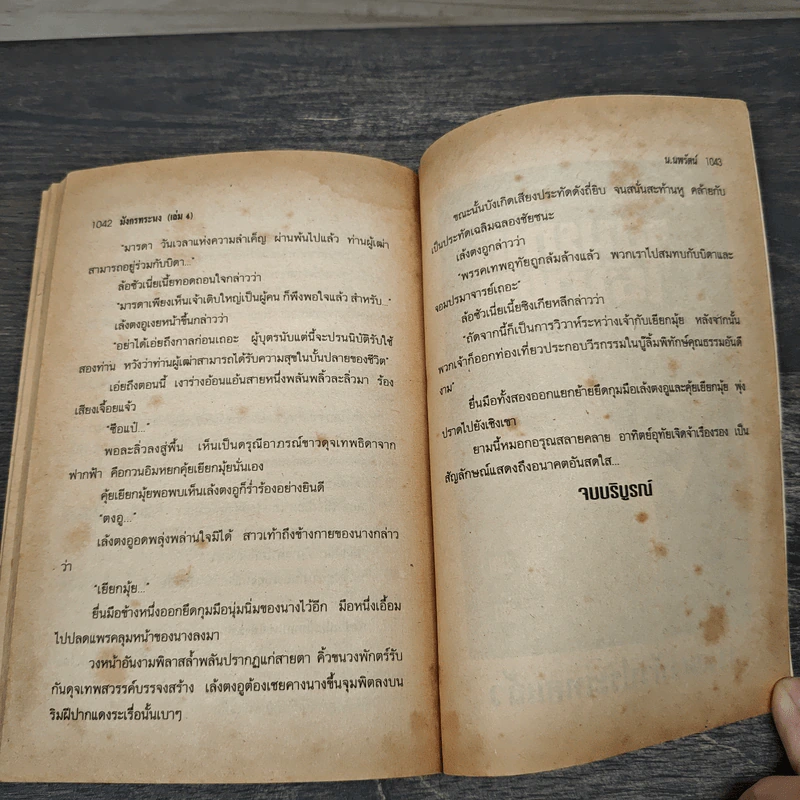 1042 มังกรทระนง (เล่ม 4)
"มารดา วันเวลาแห่งความลำเค็ญ ผ่านพ้นไปแล้ว ท่านผู้เฒ่า
สามารถอยู่ร่วมกับบิดา..."
ล้อซัวเนี่ยเนี้ยทอดถอนใจกล่าวว่า
"มารดาเพียงเห็นเจ้าเติบใหญ่เป็นผู้คน ก็พึงพอใจแล้ว สำหรับ..."
เล้งตงอูเงยหน้าขึ้นกล่าวว่า
"อย่าได้เอ่ยถึงกาลก่อนเถอะ ผู้บุตรนับแต่นี้จะปรนนิบัติรับใช้
สองท่าน หวังว่าท่านผู้เฒ่าสามารถได้รับความสุขในบั้นปลายของชีวิต"
เอ่ยถึงตอนนี้ เงาร่างอ้อนแอ้นสายหนึ่งพลันพลิ้วละลิ่วมา ร้อง
เสียงเจื้อยแจ้ว
"ซือแป๋..."
พอละลิ่วลงสู่พื้น เห็นเป็นดรุณีอาภรณ์ขาวดุจเทพธิดาจาก
ฟากฟ้า คือกวนอิมหยกคุ้ยเยียกมุ้ยนั่นเอง
คุ้ยเยียกมุ้ยพอพบเห็นเล้งตงอูก็ร่ำร้องอย่างยินดี
"ตงอู..."
เล้งตงอูอดพลุ่งพล่านใจมิได้ สาวเท้าถึงข้างกายของนางกล่าว
ว่า
"เยียกมุ้ย..."
ยื่นมือข้างหนึ่งออกยึดกุมมือนุ่มนิ่มของนางไว้อีก มือหนึ่งเอื้อม
ไปปลดแพรคลุมหน้าของนางลงมา
วงหน้าอันงามพิลาสล้ำพลันปรากฏแก่สายตา คิ้วขนวงพักตร์รับ
กันดุจเทพสวรรค์บรรจงสร้าง เล้งตงอูต้องเชยคางนางขึ้นจุมพิตลงบน
ริมฝีปากแดงระเรื่อนั้นเบาๆ
น.นพรัตน์ 1043
ขณะนั้นบังเกิดเสียงประทัดดังถี่ยิบ จนสนั่นสะท้านหู คล้ายกับ
เป็นประทัดเฉลิมฉลองชัยชนะ
เล้งตงอูกล่าวว่า
"พรรคเทพอุทัยถูกล้มล้างแล้ว พวกเราไปสมทบกับบิดาและ
จอมปรมาจารย์เถอะ"
ล้อซัวเนี่ยเนี้ยซิงเกียหลีกล่าวว่า
"ถัดจากนี้ก็เป็นการวิวาห์ระหว่างเจ้ากับเยียกมุ้ย หลังจากนั้น
พวกเจ้าก็ออกท่องเที่ยวประกอบวีรกรรมในบู๊ลิ้มพิทักษ์คุณธรรมอันดี
งาม"
ยื่นมือทั้งสองออกแยกย้ายยึดกุมมือเล้งตงอูและคุ้ยเยียกมุ้ย พุ่ง
ปราดไปยังเชิงเขา
ยามนี้หมอกอรุณสลายคลาย อาทิตย์อุทัยเจิดจ้าเรืองรอง เป็น
สัญลักษณ์แสดงถึงอนาคตอันสดใส...
จบบริบูรณ์